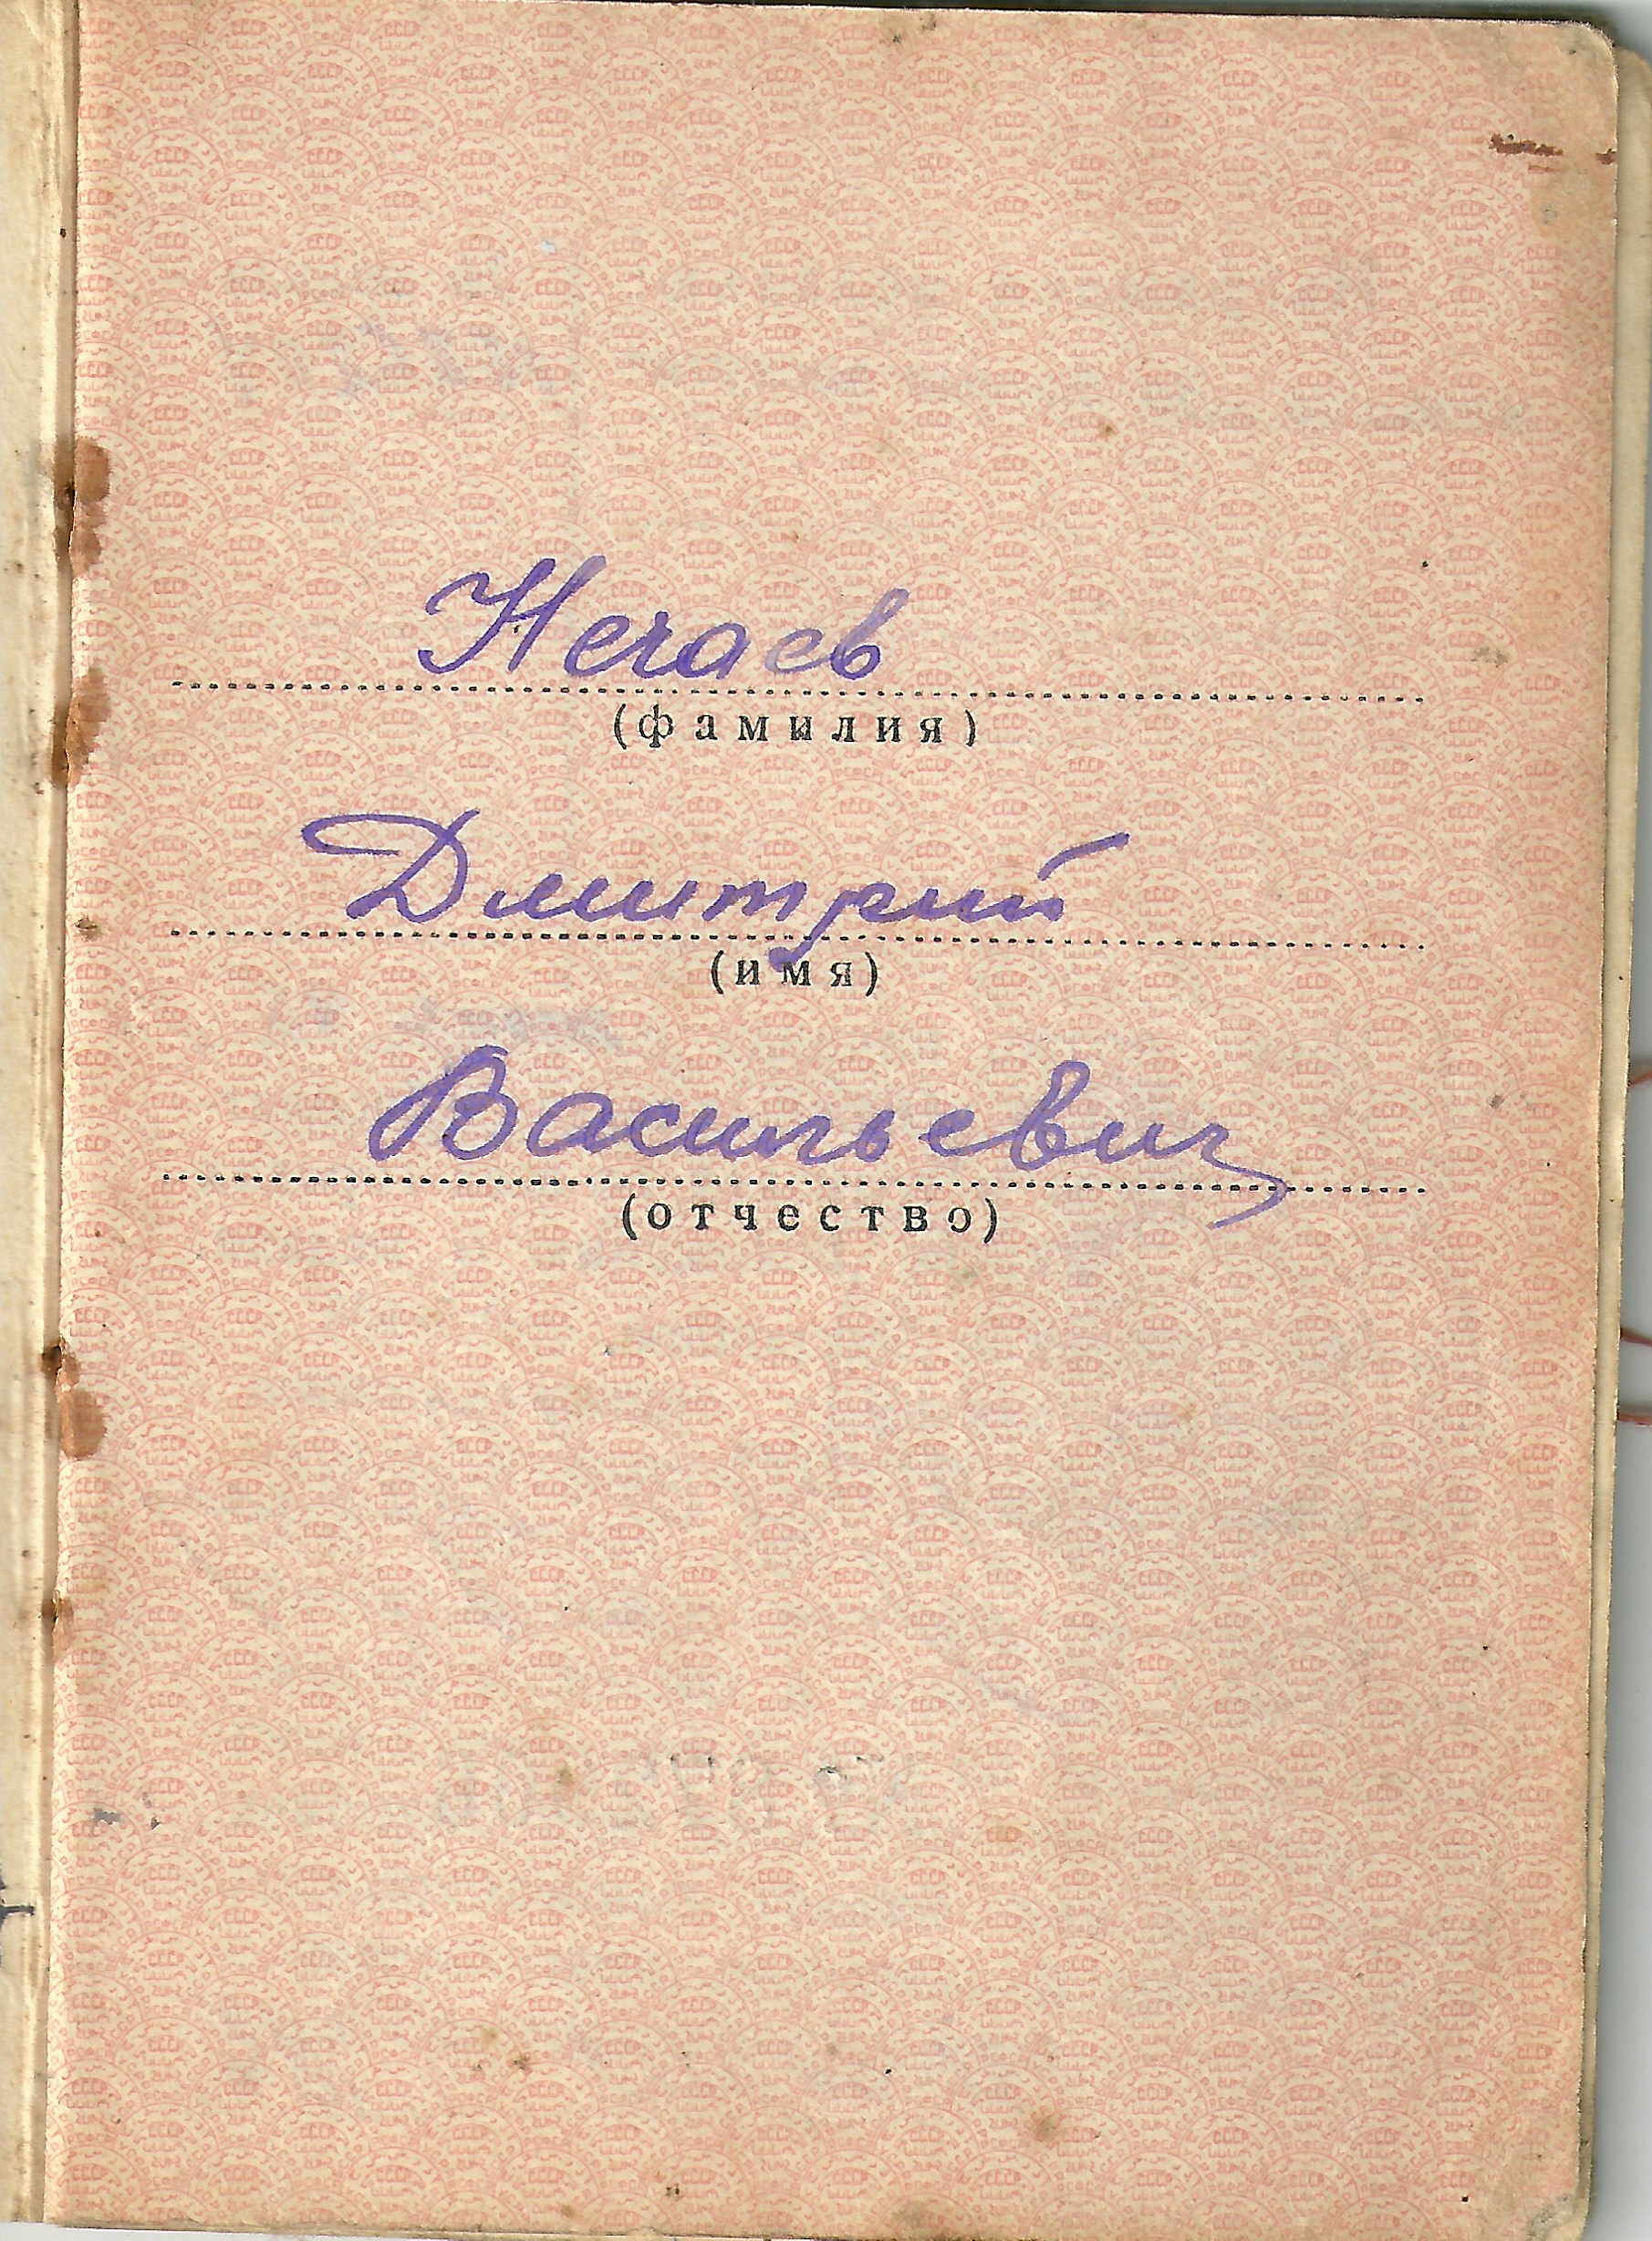 Нечаев
(фамилия)
Дмитрий
(имя)
Васильевич
(отчество)